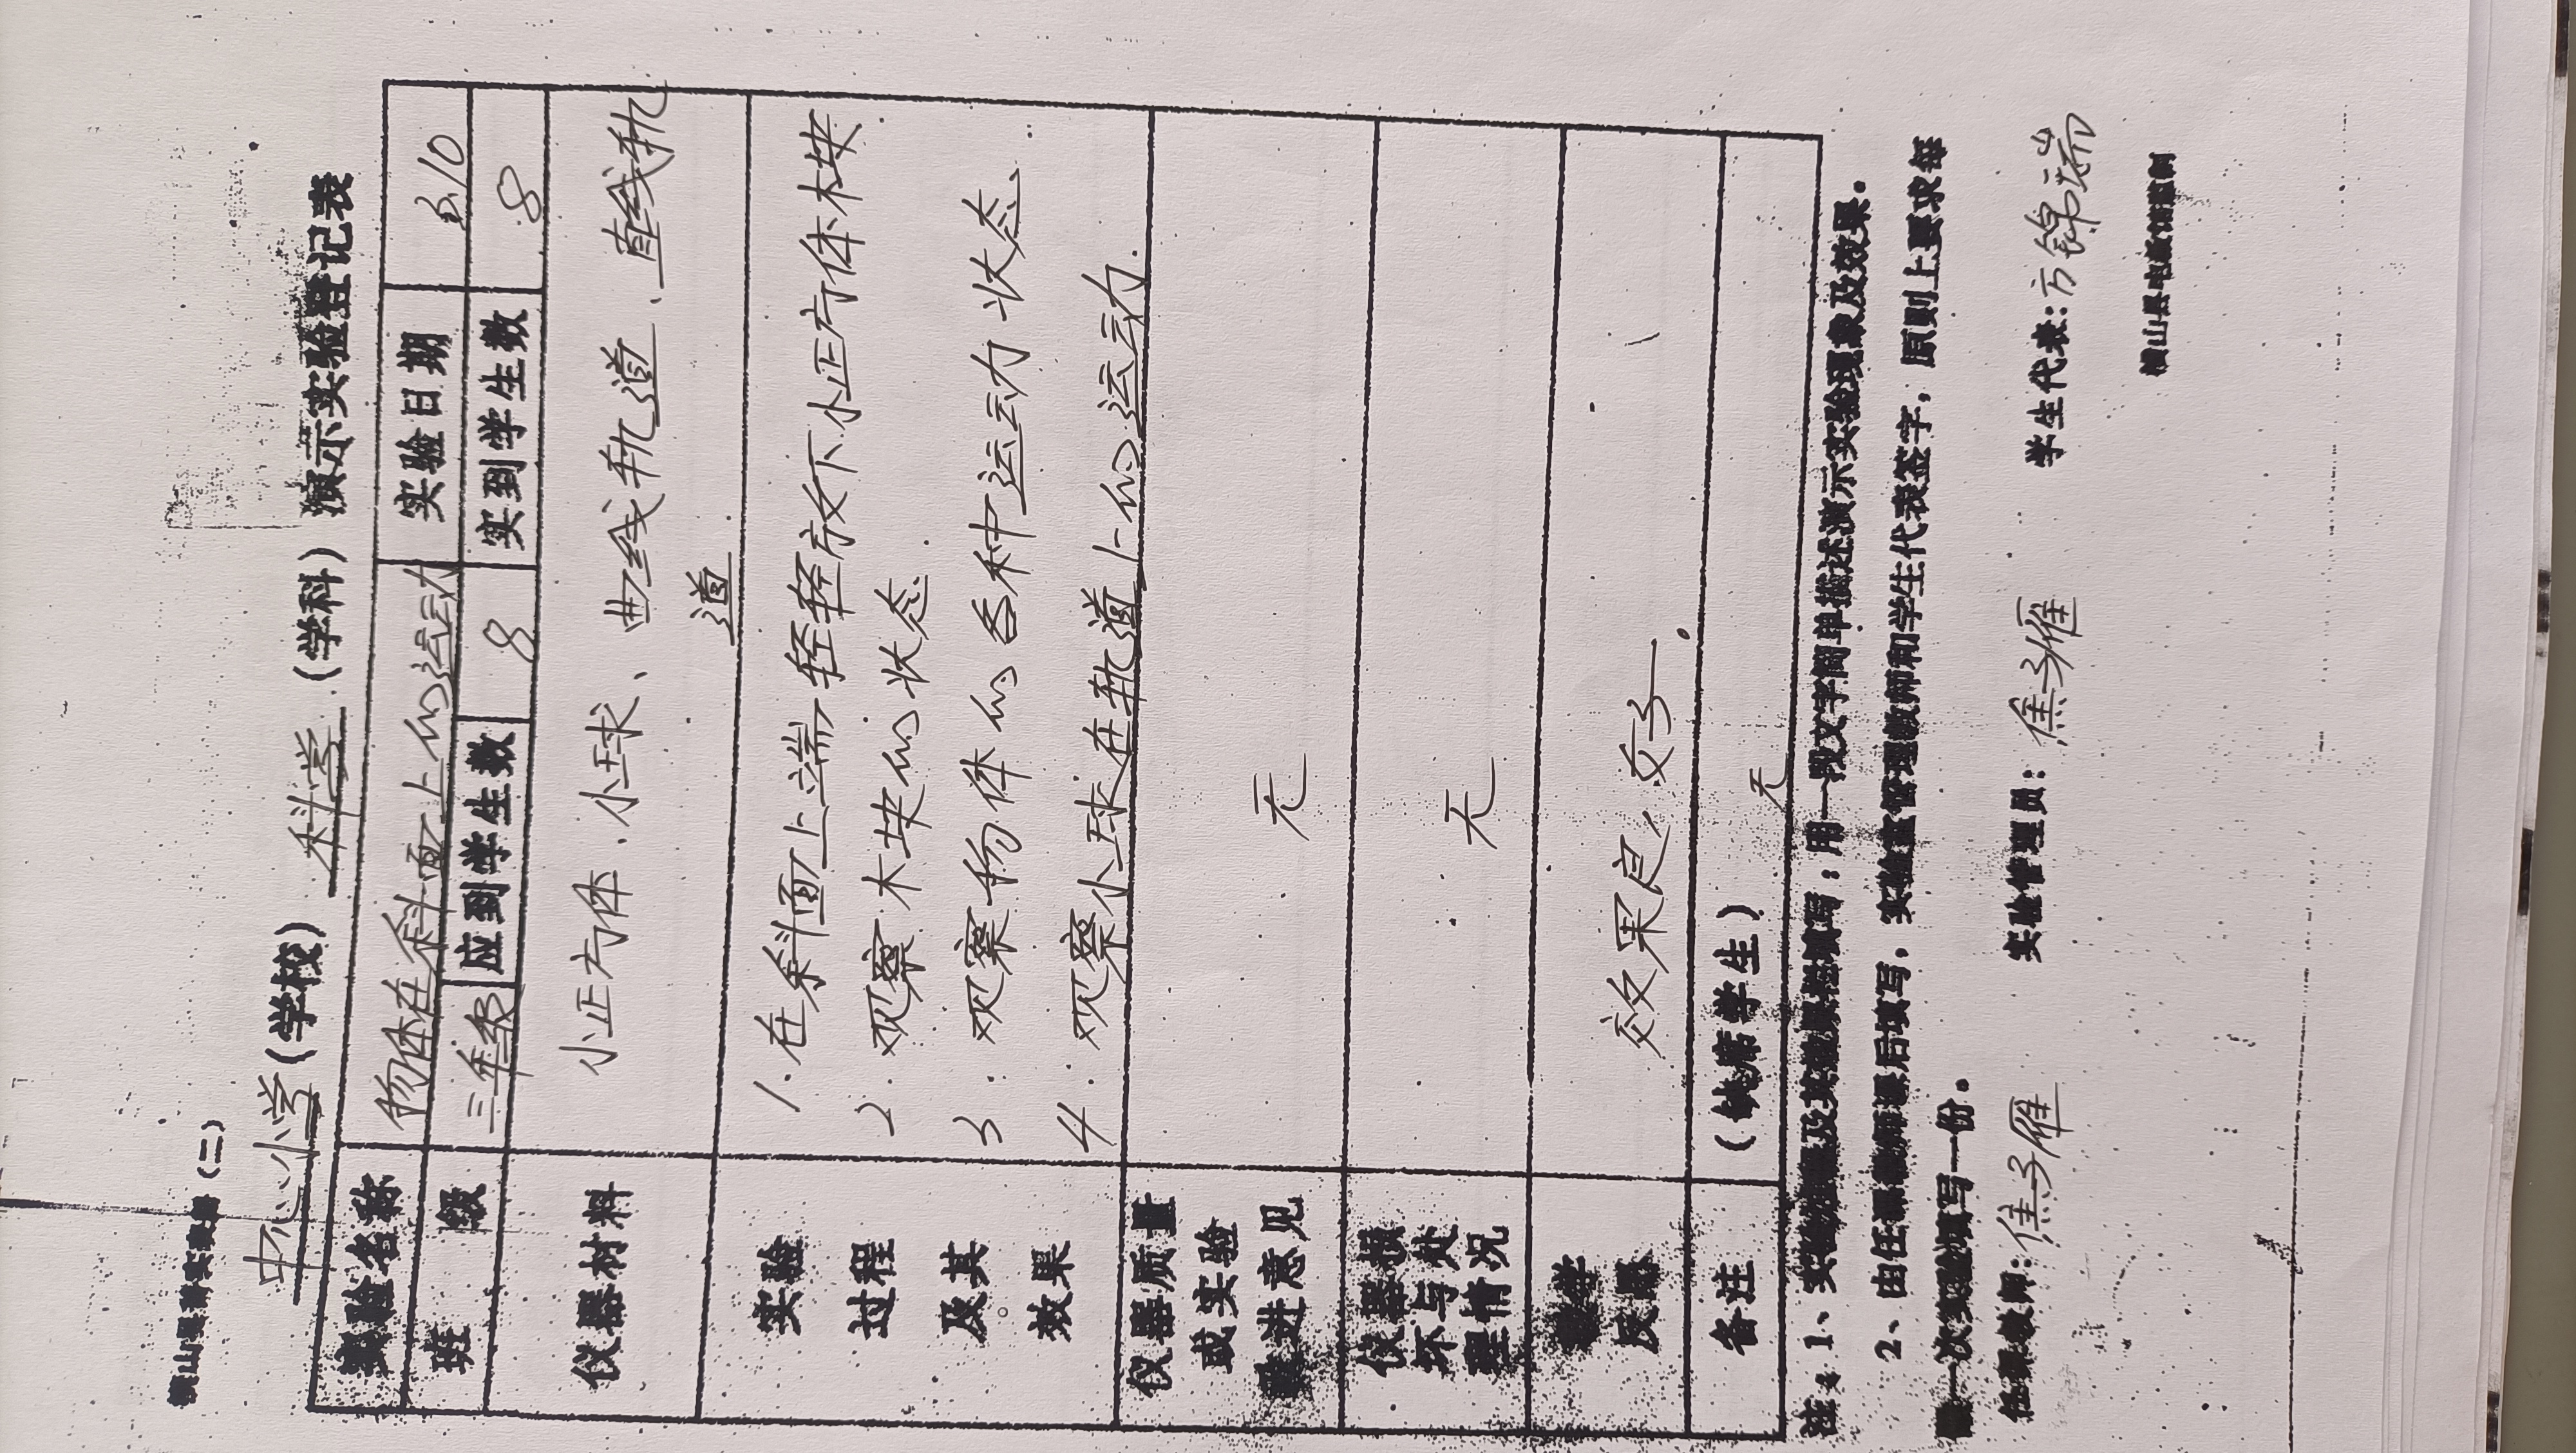 横山县教研实表（二）
中心小学（学校） 科学（学科）演示实验登记表
实验名称 物体在斜面上的运动 实验日期 3.10
班 级 三年级 应到学生数 8 实到学生数 8
仪器材料 小正方体．小球、曲线轨道、直线轨
道
实验 1．在斜面上端轻轻放下小正方体木块
过程 2．观察木块的状态．
及其 3．观察物体的各种运动状态．
效果 4．观察小球在轨道上的运动．
仪器质量
或实验 无
改进意见
仪器损
坏与处 无
理情况
教学 效果良好．
反
备注 （缺席学生） 无
注：1、实验过程及其效果栏填写：用一段文字简单描述演示实验现象及效果。
2、由任课教师课后填写，实验室管理教师和学生代表签字，原则上要求每
做一次实验填写一份。
任课教师：焦子雁 实验管理员：焦子雁 学生代表：方锦瑞
横山县电教馆